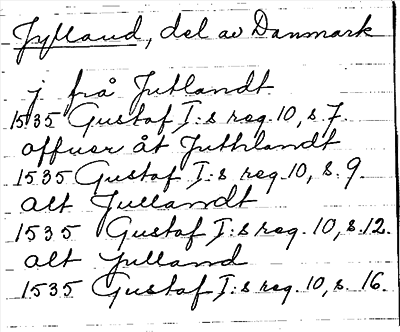 Jylland, del av Danmark
j från Jutlandt
1535 Gustaf I:s reg. 10, s. 7.
offuer åt Juthlandt
1535 Gustaf I:s reg. 10, s. 9.
alt Jullandt
1535 Gustaf I:s reg. 10, s. 12.
alt Julland
1535 Gustaf I:s reg. 10, s. 16.